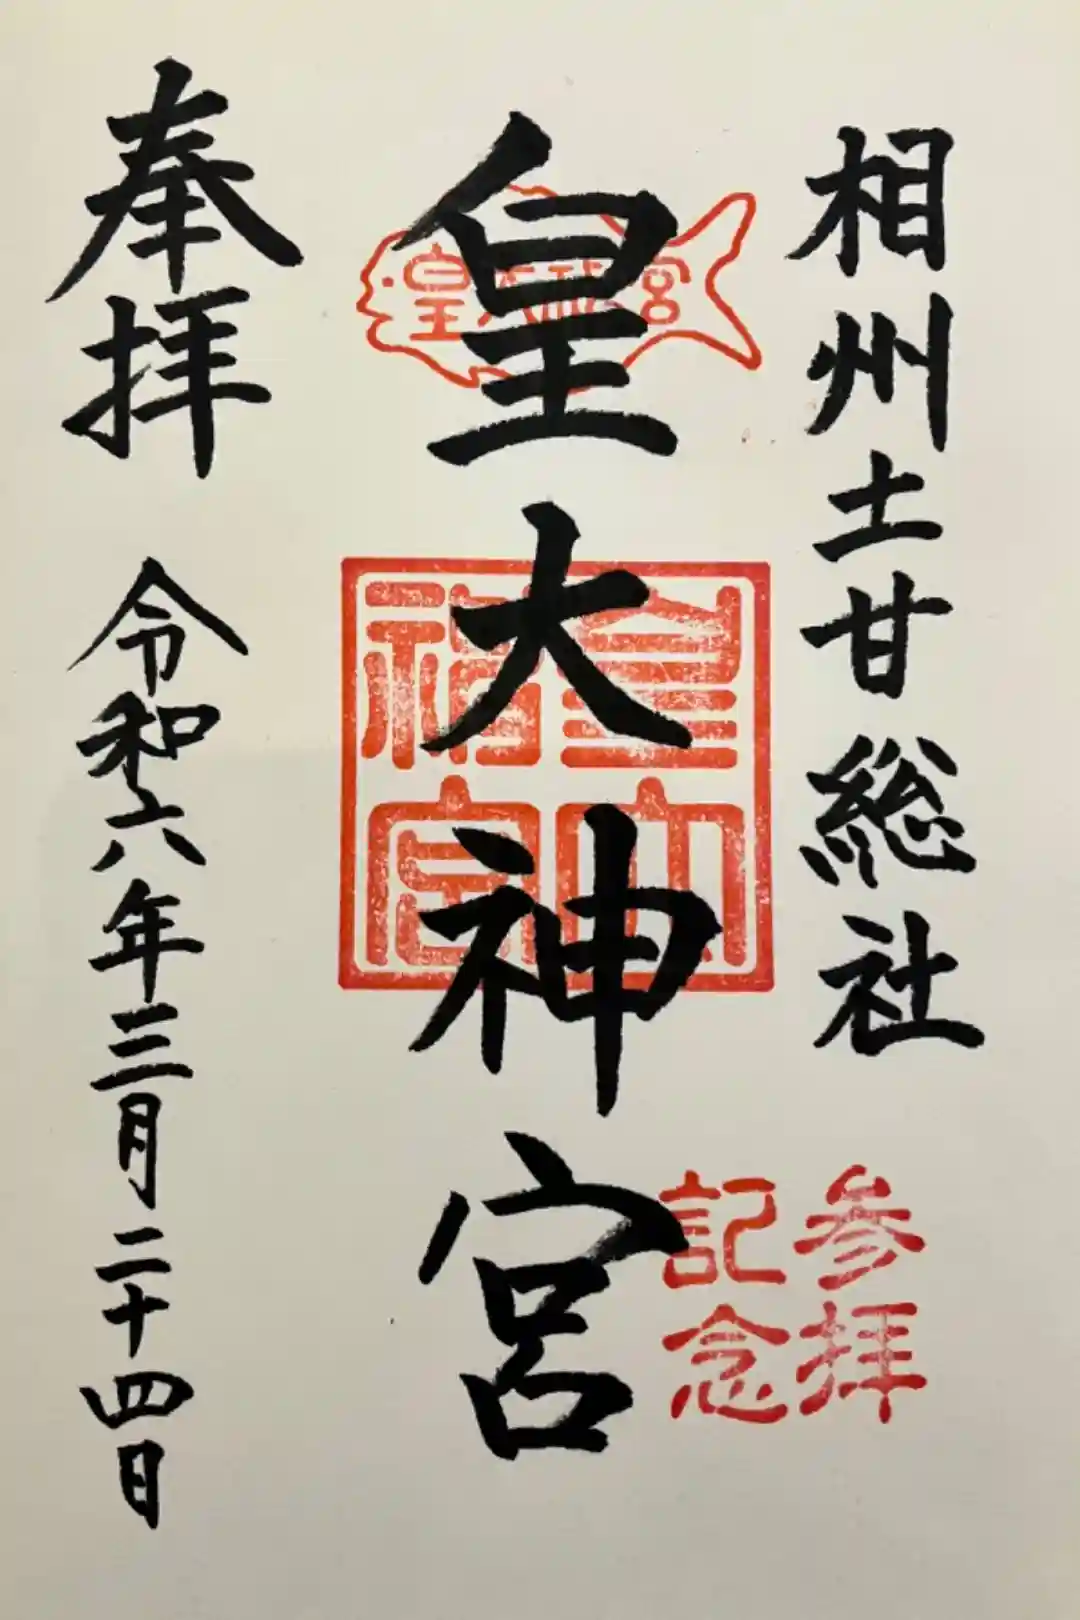 相州土甘総社
参拝
記念
皇大神宮
皇大神宮
皇大神宮
奉拝
令和六年三月二十四日